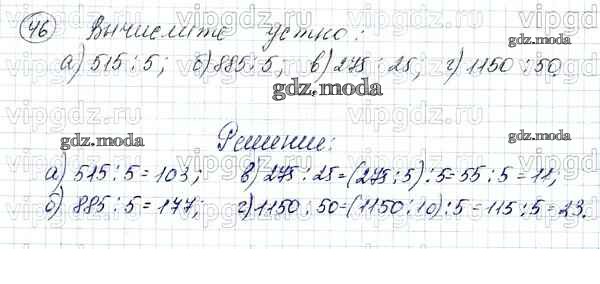 46 Вычислите устно:
а) 515:5; б) 885:5; в) 275:25; г) 1150:50.
gdz.moda
gdz.moda
Решение:
gdz.moda
а) 515:5=103; в) 275:25=(275:5):5=55:5=11;
б) 885:5=177; г) 1150:50=(1150:10):5=115:5=23.